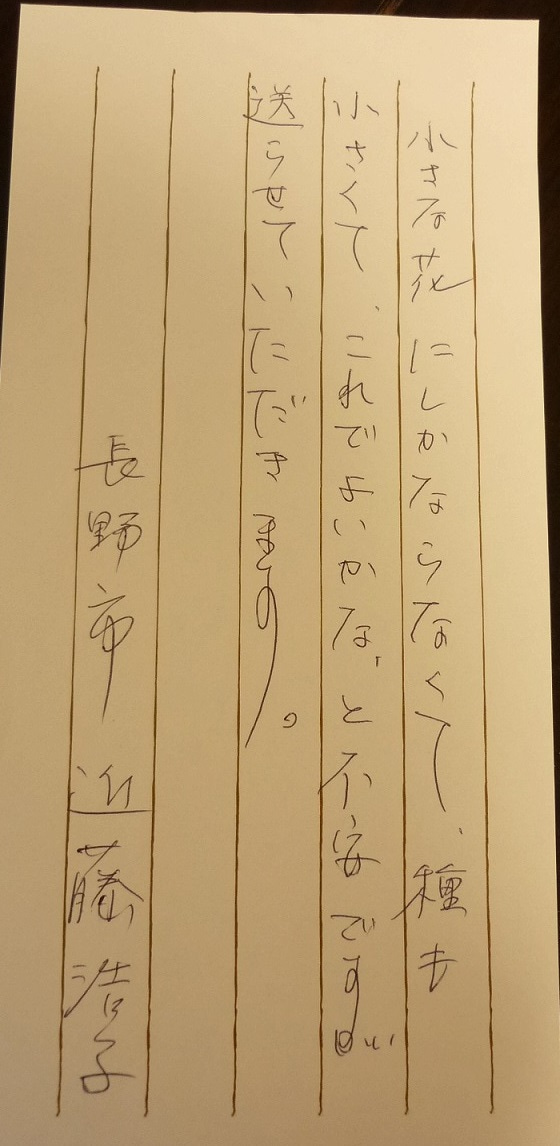 小さな花にしかならなくて、種も
小さくて、これでよいかな、と不安ですが
送らせていただきます。
長野市 近藤浩子